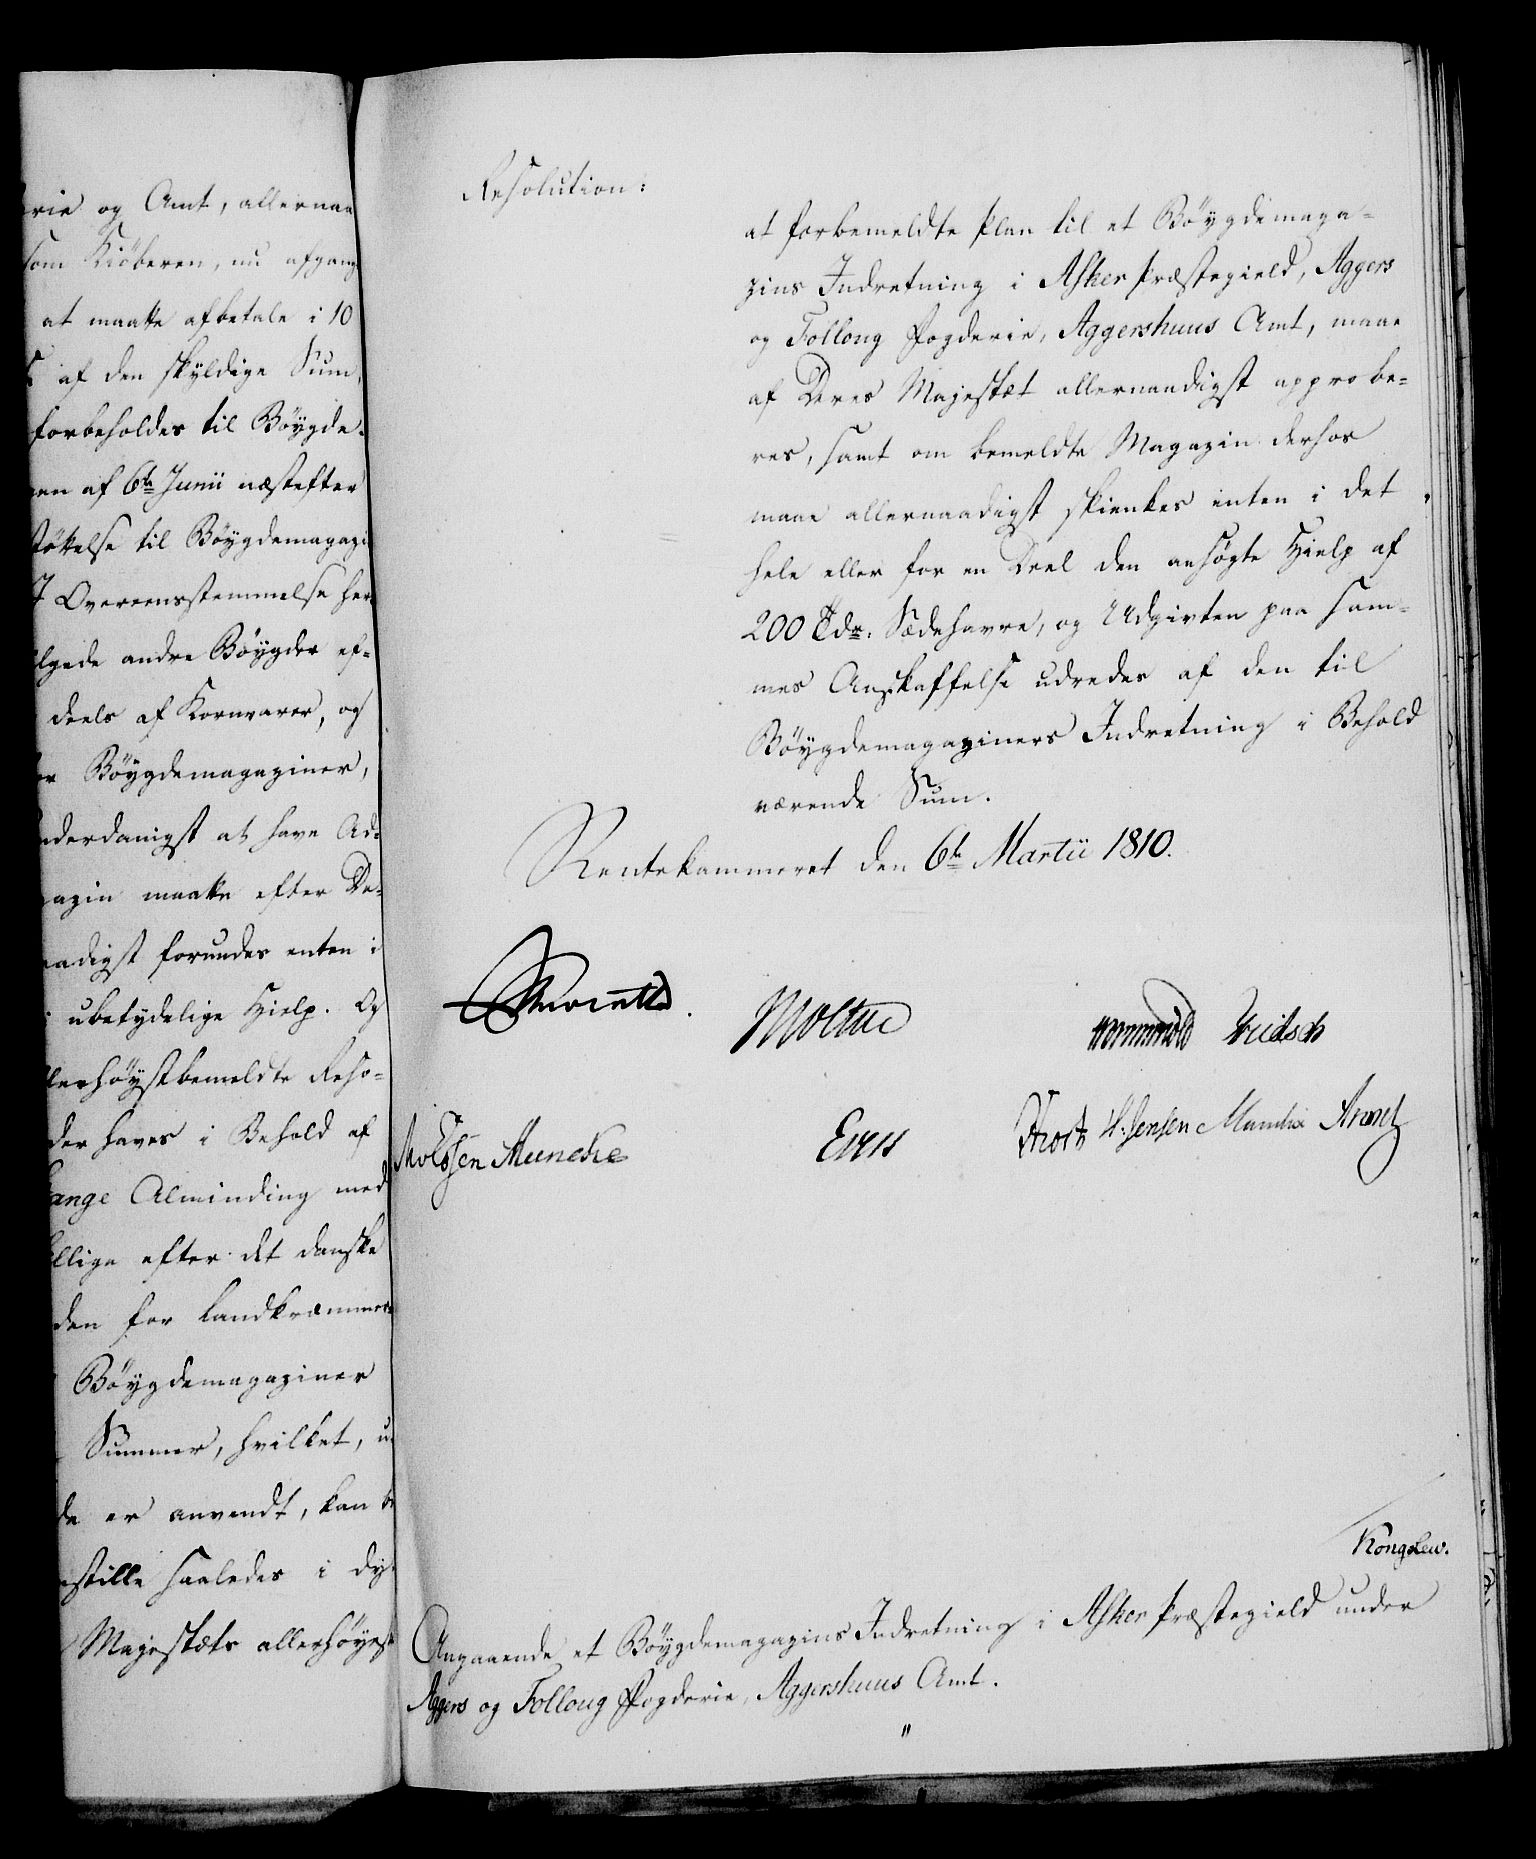 rie og Amt, allernaa
som Kiöberen, nu afgang
at maatte afbetale i 10
af den skyldige Sum,
forbeholdes til Böygde-
en af 6te Junii næstefter
tökelse til Böygdemagazi
Overeensstemmelse her
lgede andre Böygder ef-
deels af Kornvarer, og
Böygdemagaziner,
nderdanigst at have Ad-
gazin maatte efter De-
aadigst forundes enten i
ubetydelige Hielp. Og
lerhöystbemeldte Reso-
der haves i Behold af
ange Alminding med
llige efter det danske
den for Landkræmmer
Böygdemagaziner
Summer, hvilket, u
de er anvendt, kan b
stille saaledes i dy
Majestæts allerhöyest
Resolution:
at forbemeldte Plan til et Böygdemaga-
zins Indretning i Asker Præstegield, Aggers
og Follong Fogderie, Aggershuus Amt, maae
af Deres Majestæt allernaadigst approbe-
res, samt om bemeldte Magazin derhos
maae allernaadigst skienkes enten i det
hele eller for en Deel den ansögte Hielp af
200 Tdr. Sædehavre, og Udgivten paa sam-
mes Anskaffelse udredes af den til
Böygdemagaziners Indretning i Behold
værende Sum.
Rentekammeret den 6te Martii 1810.
Moltke
Wormskiold Knudsen
Monrad
Moldsen Muncke
H. Jensen Arentz
Kongslew.
Angaaende et Böygdemagazins Indretning i Asker Præstegield under
Aggers og Follong Fogderie, Aggershuus Amt.
"